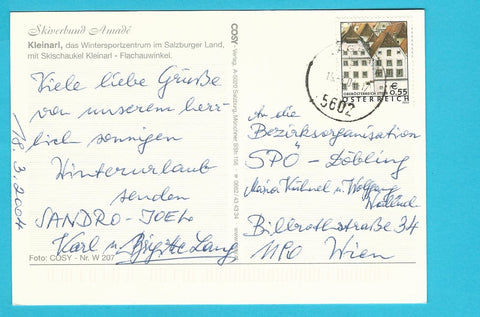 Skiverbund Amadé
Kleinarl, das Wintersportzentrum im Salzburger Land,
mit Skischaukel Kleinarl - Flachauwinkel.
Viele liebe Grüße
von unserem herr-
lich sonnigen
Winterurlaub
senden
SANDRO-JOEL
Karl u. Brigitte Lang
18.3.2004
Foto: COSY - Nr. W 207
COSY-Verlag, A-5020 Salzburg,
€ 0,55
OBERÖSTERREICH
ÖSTERREICH
5602
An die
Bezirksorganisation
SPÖ-Döbling
Maria Kühnel u. Wolfgang
Billrothstraße 34
1190 Wien